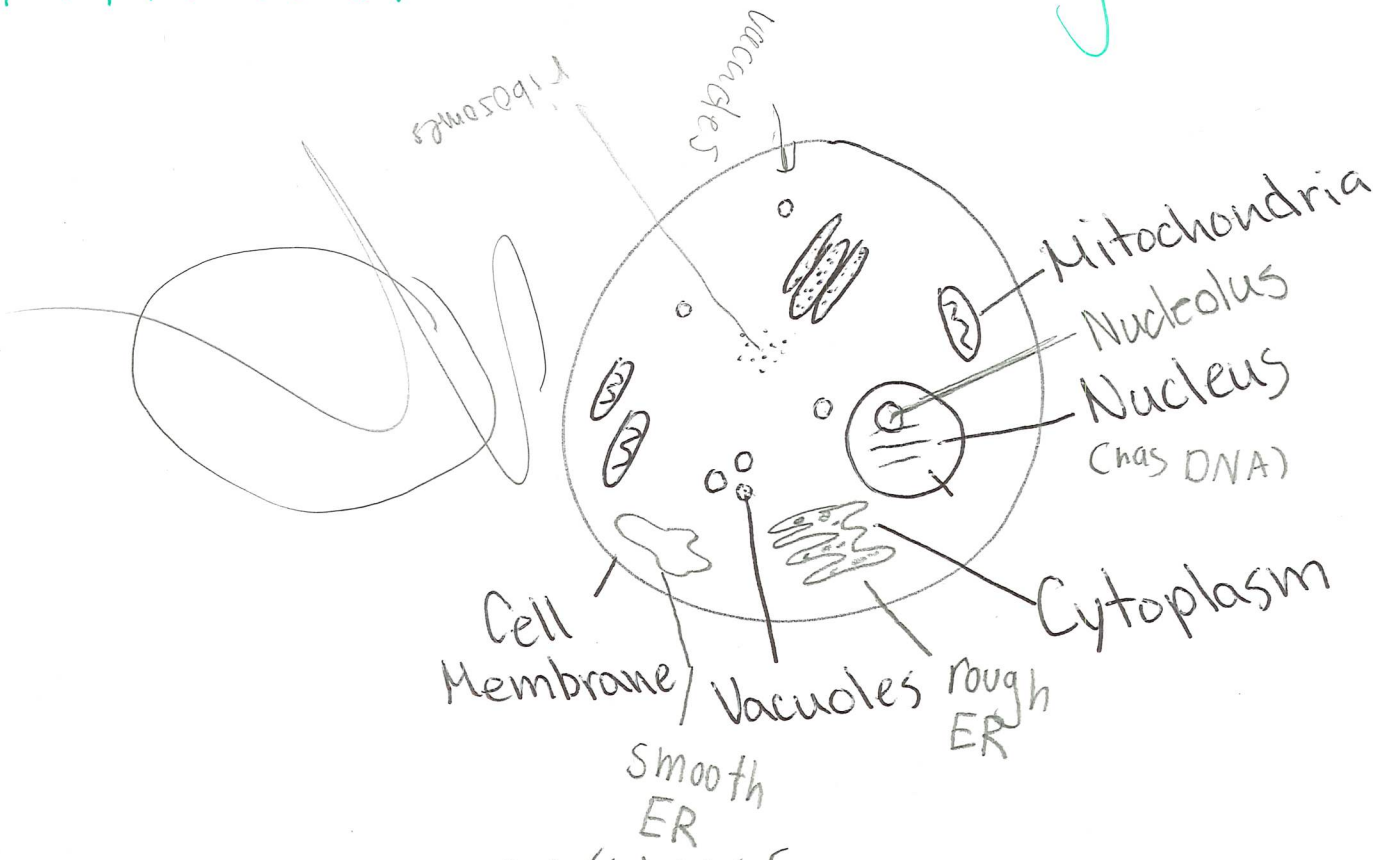 vaccuoles
ribosomes
Mitochondria
Nucleolus
Nucleus
(has DNA)
Cytoplasm
Cell
Membrane
Vacuoles
rough
ER
smooth
ER